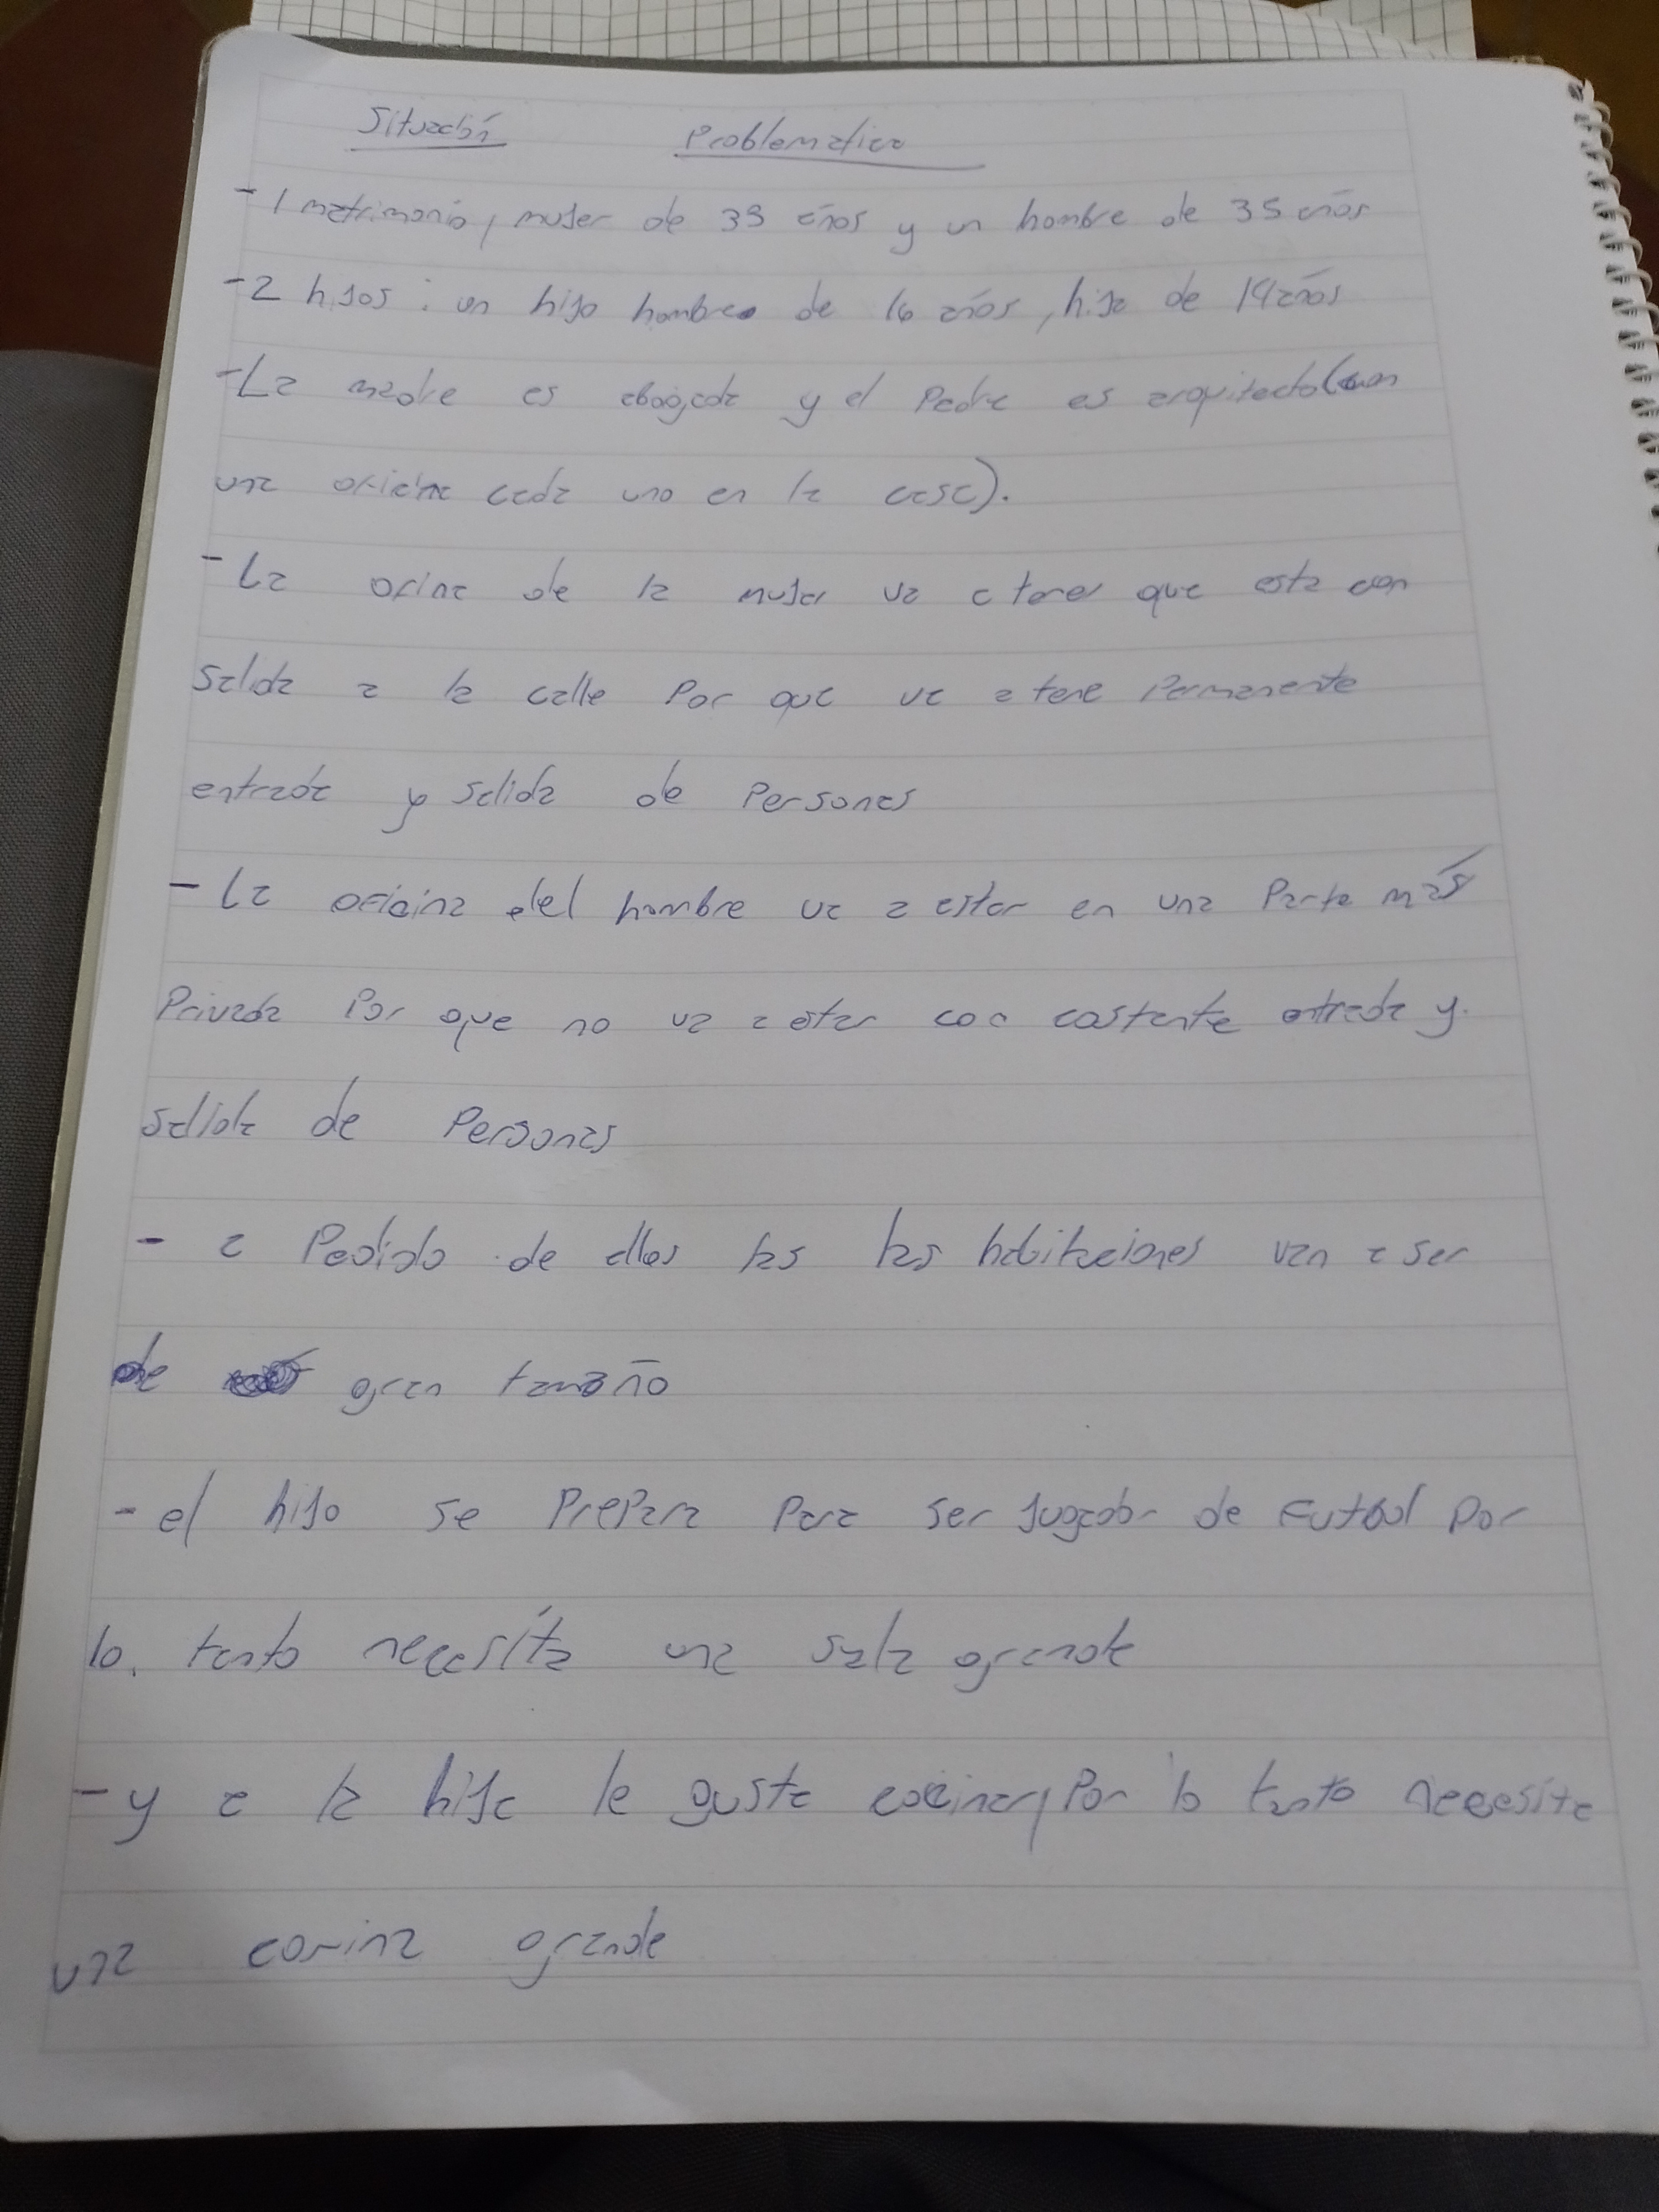 Situación Problematica
- 1 matrimonio, mujer de 39 años y un hombre de 35 años
- 2 hijos : un hijo hombre de 16 años, hija de 19 años
- La madre es abogada y el Padre es arquitecto (con
una oficina cada uno en la casa).
- La ofina de la mujer va a tener que esta con
salida a la calle Por que va a tene Permanente
entrada y salida de Personas
- La oficina del hombre va a estar en una Parte más
Privada Por que no va a estar con costante entrada y
salida de Personas
- a Pedido de ellos las las habitaciones van a ser
de gran tamaño
- el hijo se PrePara Para ser jugador de Futbol Por
lo. tanto necesíta una sala grande
- y a la hija le gusta cocinar, Por lo tanto necesíta
una cocina grande